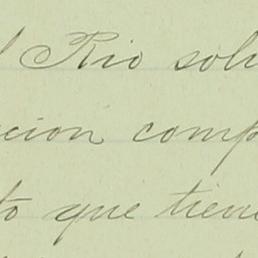 l Rio solu
cion comp
to que tiene